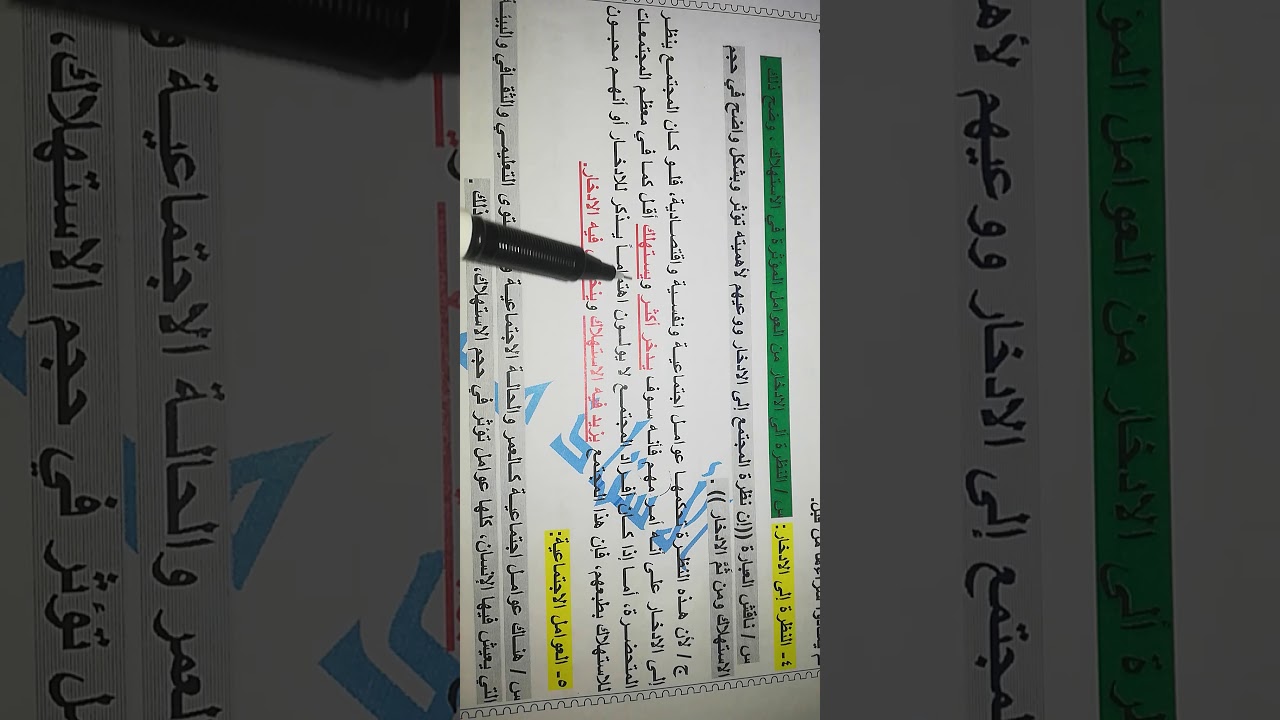 لم يعتادوا شراءها من قبل.
٤- النظرة إلى الادخار: س / النظرة ألى الادخار من العوامل المؤثرة في الاستهلاك ، وضح ذلك .
س / ناقش العبارة ((إن نظرة المجتمع إلى الادخار ووعيهم لأهميته تؤثر وبشكل واضح في حجم
الاستهلاك ومن ثُمَّ الادخار )) .
ج / لأن هذه النظرة تحكمها عوامل اجتماعية ونفسية واقتصادية، فلو كان المجتمع ينظر
إلى الادخار على أنه أمر مهم فأنه سوف يدخر أكثر ويستهلك أقل كما في معظم المجتمعات
المتحضرة، أما إذا كان افراد المجتمع لا يولون اهتماماً يذكر للادخار أو أنهم محبون
للاستهلاك بطبعهم، فإن هذا المجتمع يزيد فيه الاستهلاك فيه الادخار.
٥- العوامل الاجتماعية:
س / هناك عوامل اجتماعية كالعمر والحالة الاجتماعية التعليمي والثقافي والبيئة
التي يعيش فيها الإنسان، كلها عوامل تؤثر في حجم الاستهلاك، ذلك .